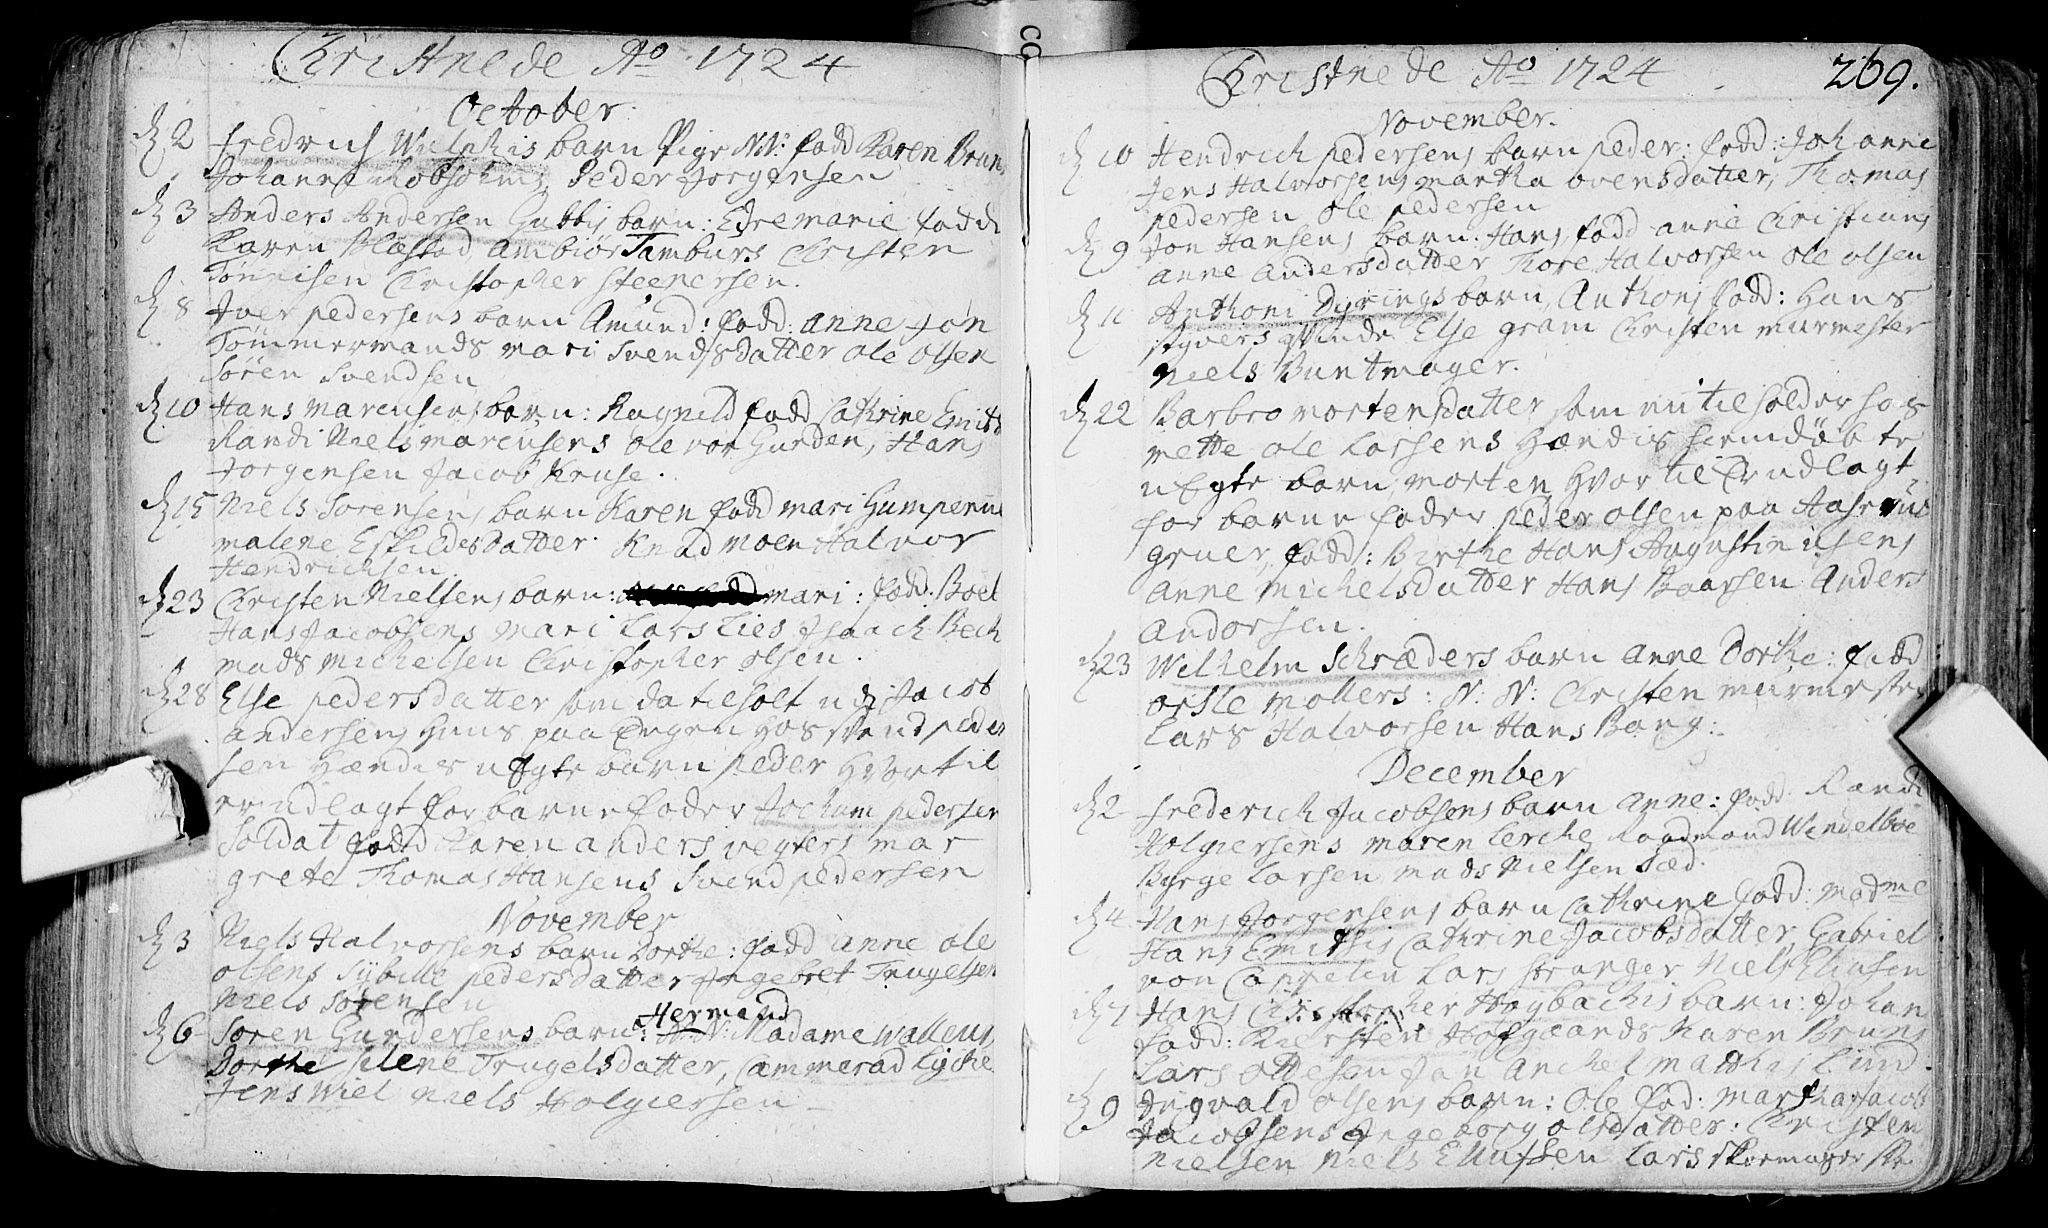 Christnede Ao 1724
October
d 2 Fredrich Wielphis barn Pige NN: fadd Karen Bruns
Johanne Robsohms, Peder Jorgensen
d 3 Anders Andersen Gubbis barn: Edremarie fadd
Karen Blæstad Ambiør Tamburs Christen
Tønnisen Christopher Steenersen.
d 8 Iver pedersens barn Amund: fadd: anne Jon
Tømmermands mari Svendsdatter ole olsen
Søren Svendsen
d 10 Hans marensens barn: Ragnild fadd Cathrine Emits
Randi Niels marensens ole vor Gurden, Hans
Jorgensen Jacob Kruse.
d 15 Niels Sorensens barn Karen fadd mari Humperuns
malene Eskildsdatter. Knud moen Halvor
Hendrichsen
d 23 Christen Nielsens barn: mari: fadd: Boel
Hans Jacobsens Mari Lars Lies Isaach Bech
mads Michelsen Christopher olsen.
d 28 Else pedersdatter som da tilholt udj Jacob
andersens Huus paa Engen Hos Svend peder
sen Hændis uEgte barn peder Hvortil
er udlagt for barne fader Jochum pedersen
Soldat fadd Karen anders vegters mar
grete Thomas Hansens Svend pedersen
November
d 3 Niels Halvorsens barn Dorthe: fadd anne ole
olsens Sybille pedersdatter Ingebret Trugelsen
Niels Sørensen
Hermand
d 6 Soren Gundersens barn: N.N: Madame Walleurs
Dorthe Helene Trugelsdatter, Cammerad Lyche
Jens Wiel Niels Holgiersen

Christnede Ao 1724
269.
November.
d 10 Hendrich pedersens barn peder: fadd: Johanne
Jens Halvorsens martha ovensdatter, Thomas
pedersen ole pedersen
d 9 Jon Hansens barn: Hans fadd anne Christians
anne Andersdatter Thore Halvorsen ole olsen
d 11 Anthoni Dyrings barn Anthoni fadd: Hans
styvers qvinde Else gram Christen murmester
Niels Buntmager.
d 22 Barbro mortensdatter som nu tilholder hos
mette ole Larsens Hændis hiemdøbte
uEgte barn, morten Hvortil Er udlagt
for barne fader peder olsen paa Aaserud
gruer, fadd: Birthe Hans Augustinusens
Anne Michelsdatter Hans Baarsen Anders
Andorsen.
d 23 Welhelm Schræders barn Anne Dorthe: fadd
orsle Mollers: N. N: Christen murmester
Lars Halvorsen Hans Bang:
December
d 2 Frederich Jacobsens barn Anne: fadd: Randi
Holgiersens maren Lerche Raadmand Wendelboe
Byrge Larsen mads Nielsen Sæd.
d 4 Hans Jorgensens barn Cathrine fadd: madme
Hans Emithis Cathrine Jacobsdatter, Gabriel
von Cappelin Lars Spranger Niels Eliasen
d 7 Hans Christopher Høgbachis barn: Johan
fadd: Kiersten Hofgaards Karen Bruns
Lars Ottesen Jan Anchel matthis Lund.
d 9 Ingvald olsens barn: Ole fad: martha Jacob
Jacobsens Ingeborg olsdatter. Christen
Nielsen Niels Ellufsen Lars skoemager